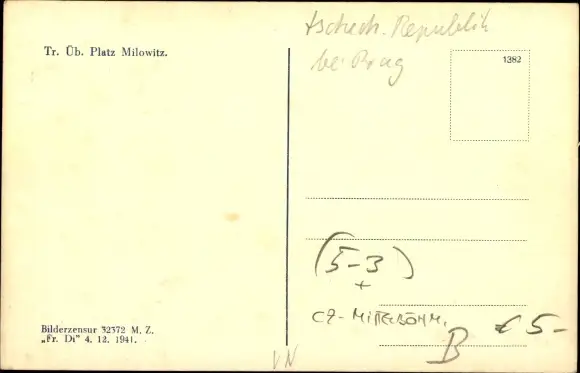 Tr. Üb. Platz Milowitz.
tschech. Republik
bei Prag
1382
(5-3)
+
CZ-MITTELBÖHM.
B € 5-
Bilderzensur 32372 M. Z.
„Fr. Di” 4. 12. 1941.
VN